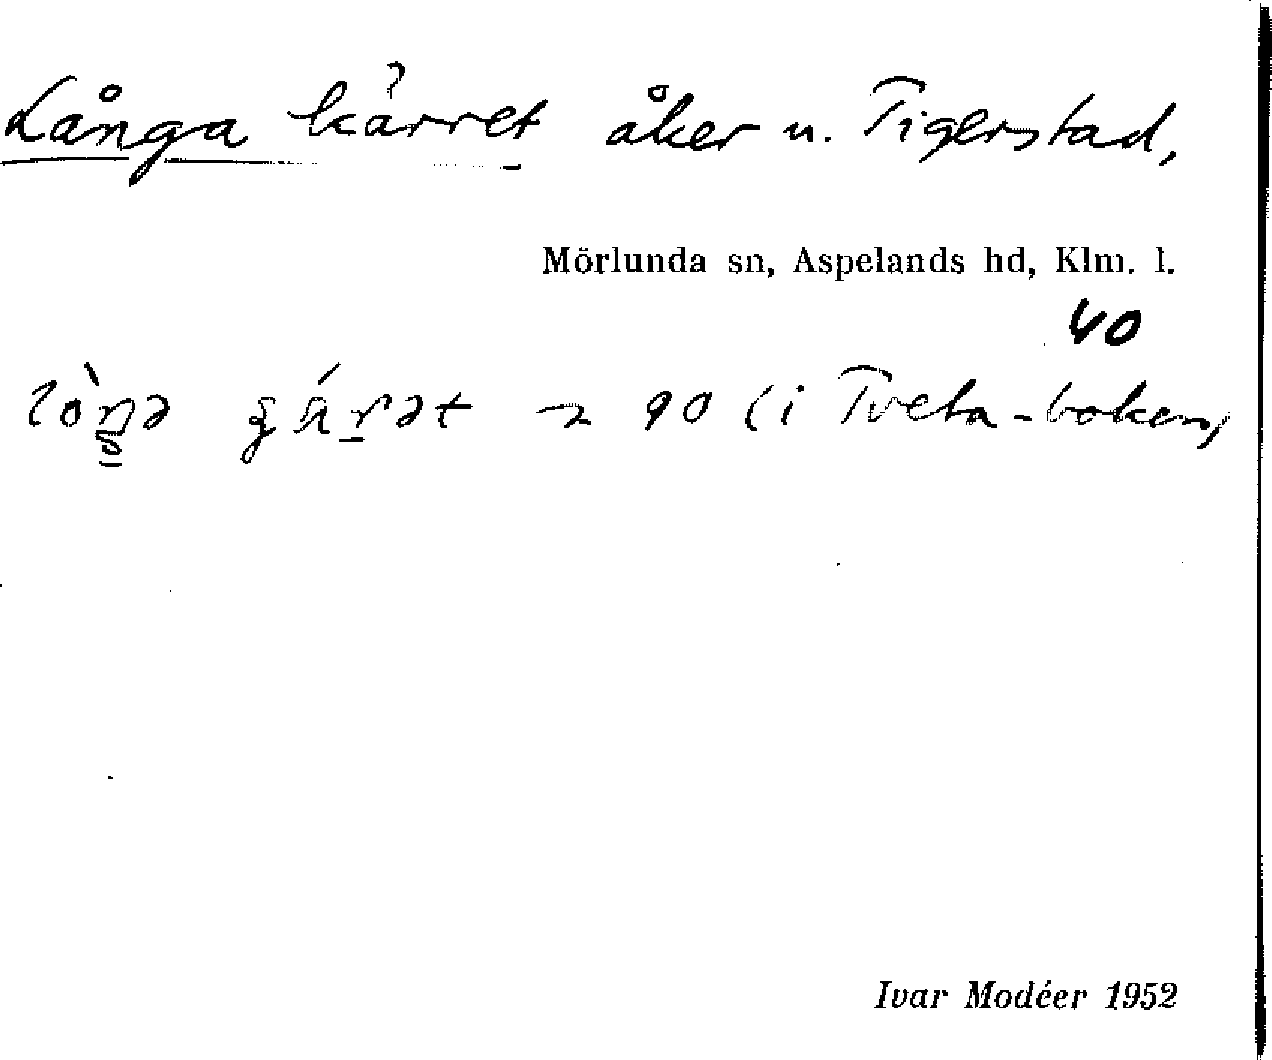 Långa kärret åker u. Tigerstad,
Mörlunda sn, Aspelands hd, Klm. l.
40
90 (i Tveta-boken)
Ivar Modéer 1952